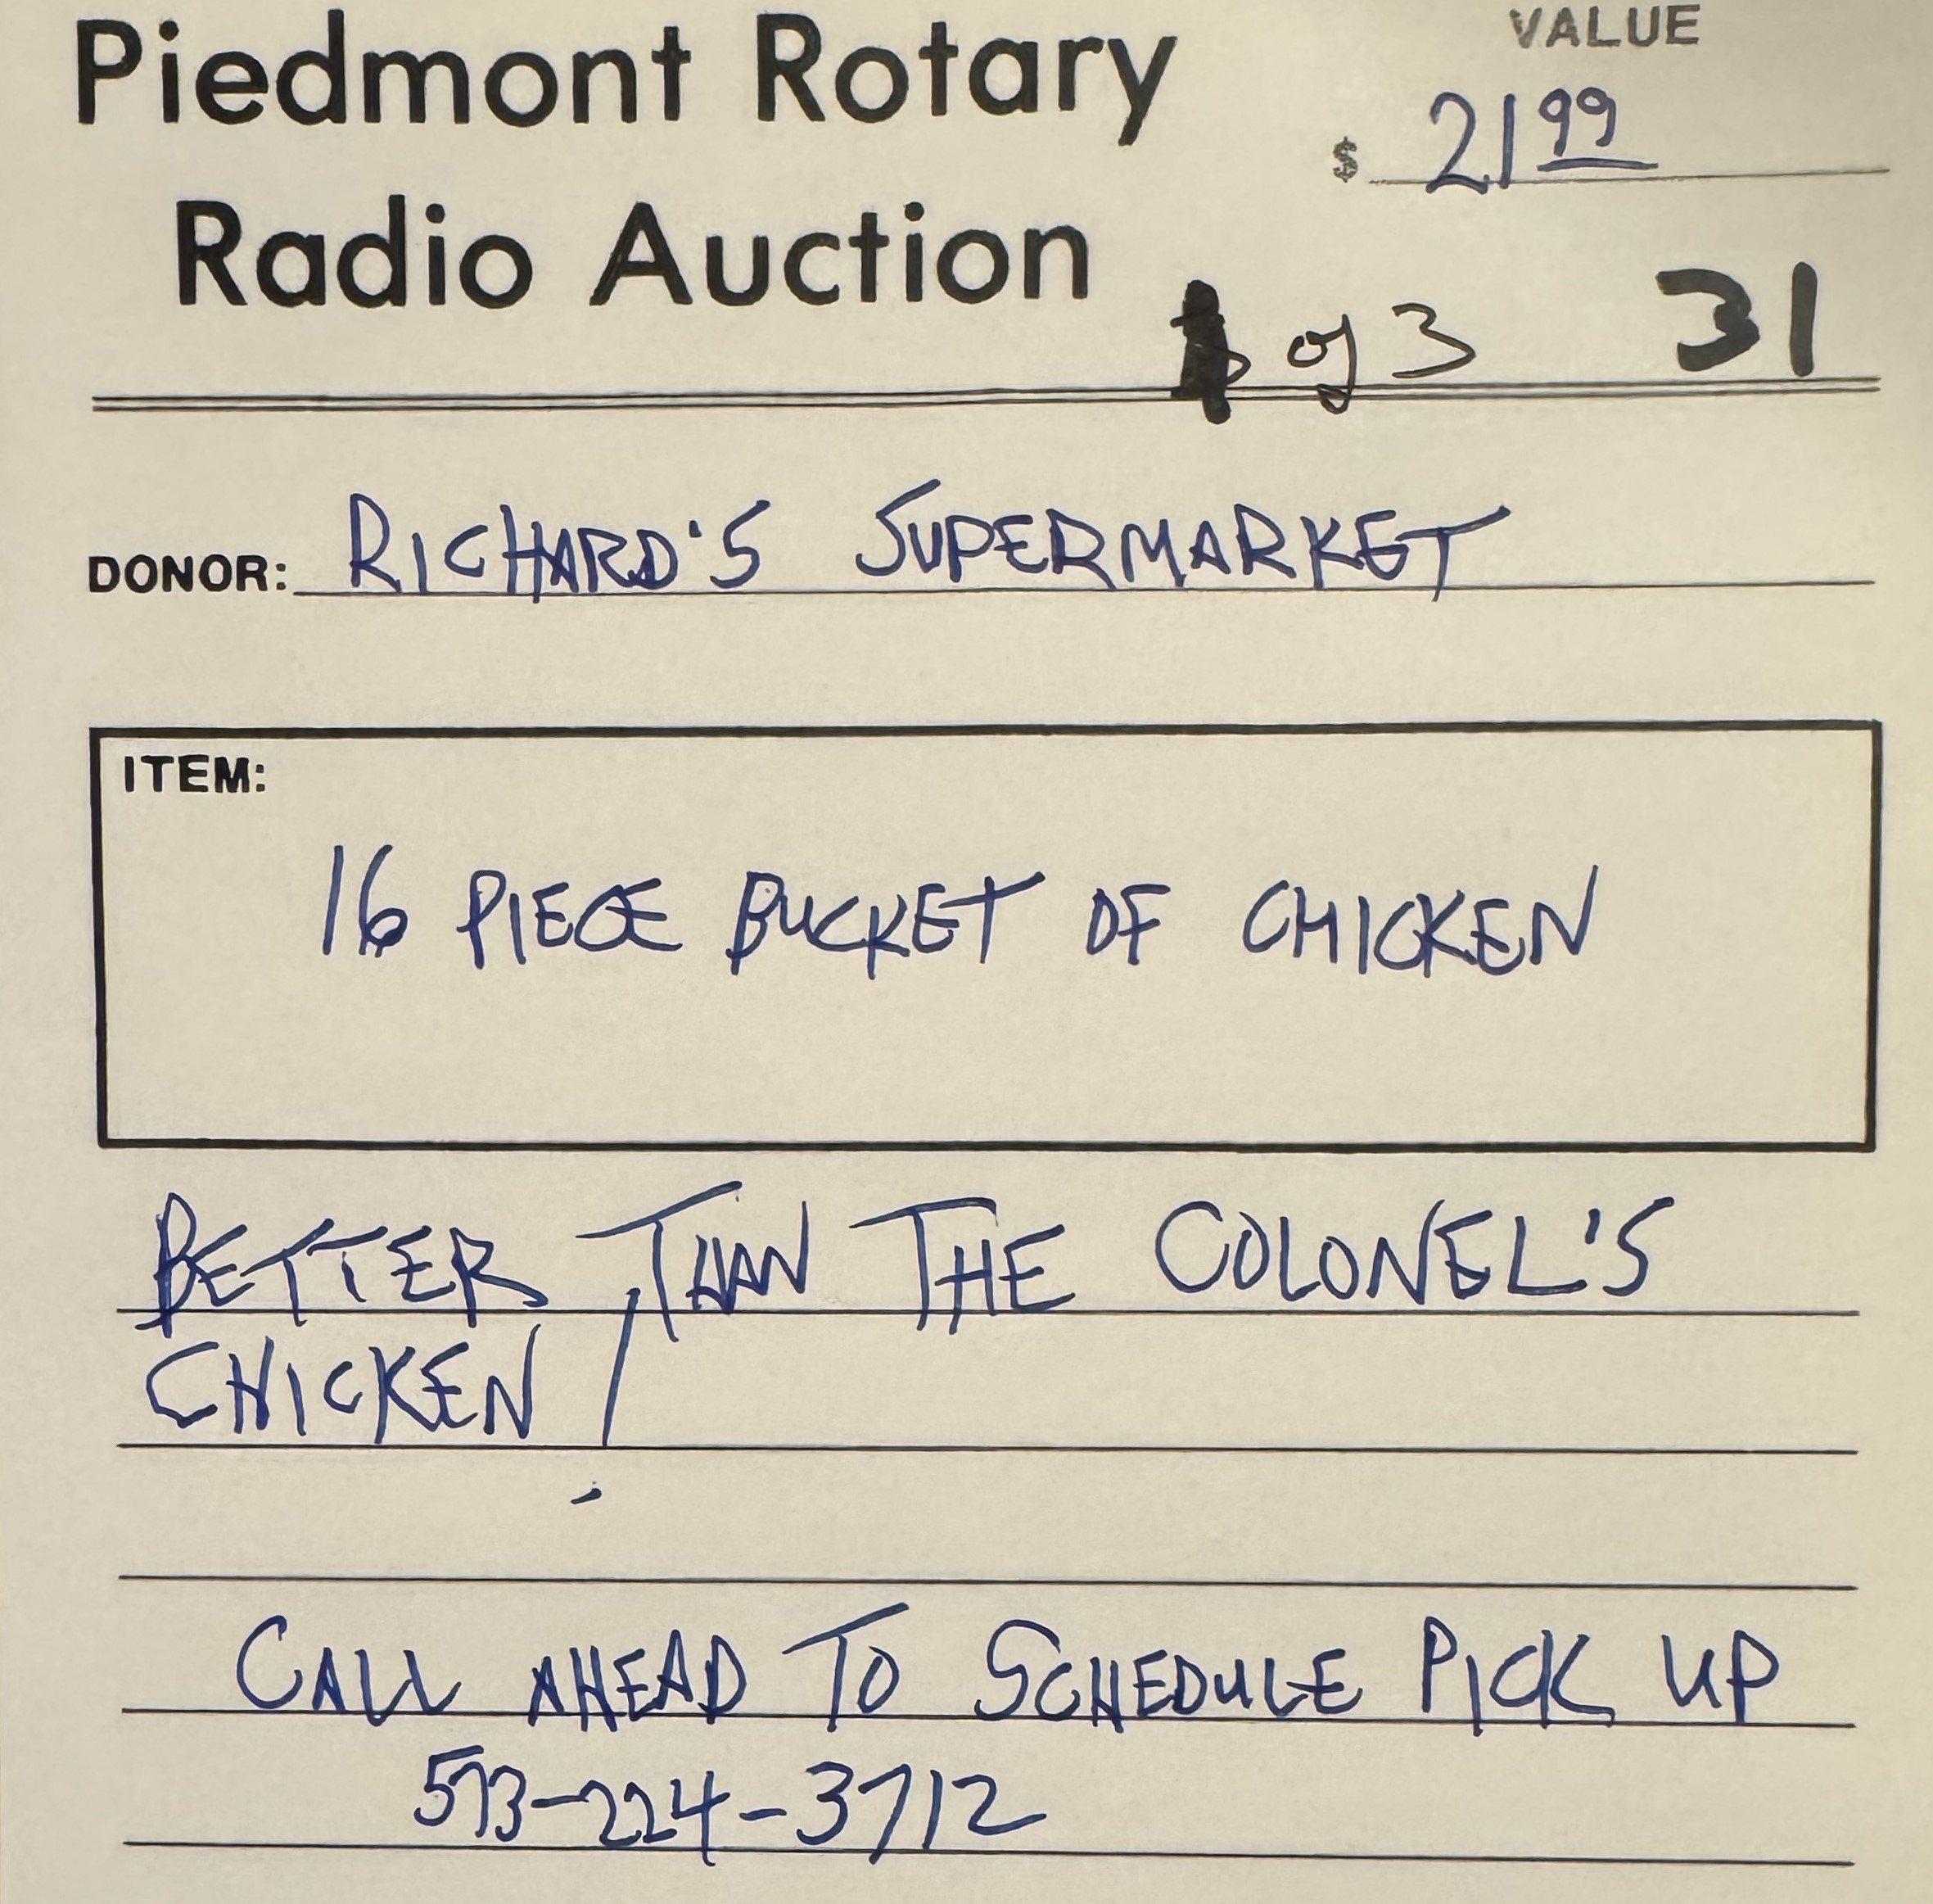 Piedmont Rotary
VALUE
$ 21 99
Radio Auction
of 3
31
DONOR: RICHARD'S SUPERMARKET
ITEM:
16 PIECE BUCKET OF CHICKEN
BETTER THAN THE COLONEL'S
CHICKEN!
CALL AHEAD TO SCHEDULE PICK UP
573-224-3712